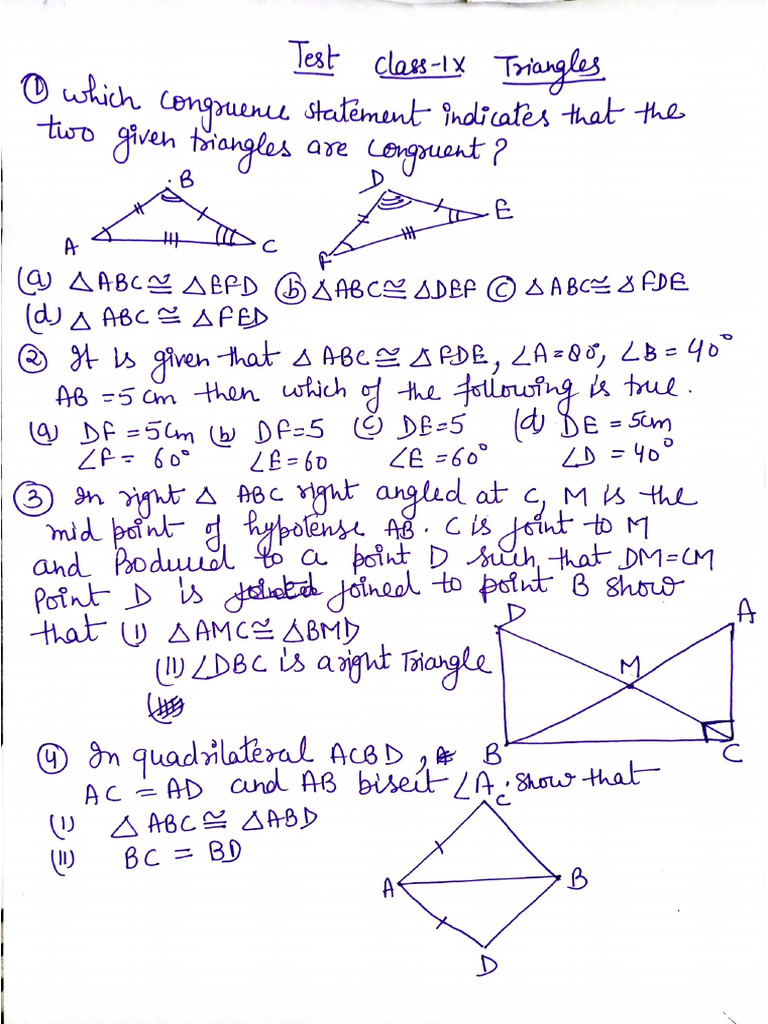 Test Class-IX Triangles
① Which congruence statement indicates that the
two given triangles are congruent?
B
D
E
A
C
F
(a) △ABC ≅ △EFD (b) △ABC ≅ △DEF (c) △ABC ≅ △FDE
(d) △ ABC ≅ △FED
② It is given that △ABC ≅ △FDE, ∠A = 80°, ∠B = 40°
AB = 5 cm then which of the following is true.
(a) DF = 5cm (b) DF = 5 (c) DE = 5 (d) DE = 5cm
∠F = 60° ∠E = 60 ∠E = 60° ∠D = 40°
③ In right △ ABC right angled at C, M is the
mid point of hypotense AB. C is joint to M
and Produced to a point D such that DM = CM
Point D is joined to point B show
that (I) △AMC ≅ △BMD
(II) ∠DBC is a right Triangle
D
A
M
B
C
④ In quadrilateral ACBD,
AC = AD and AB bisect ∠A. show that
(I) △ ABC ≅ △ABD
(II) BC = BD
C
A
B
D